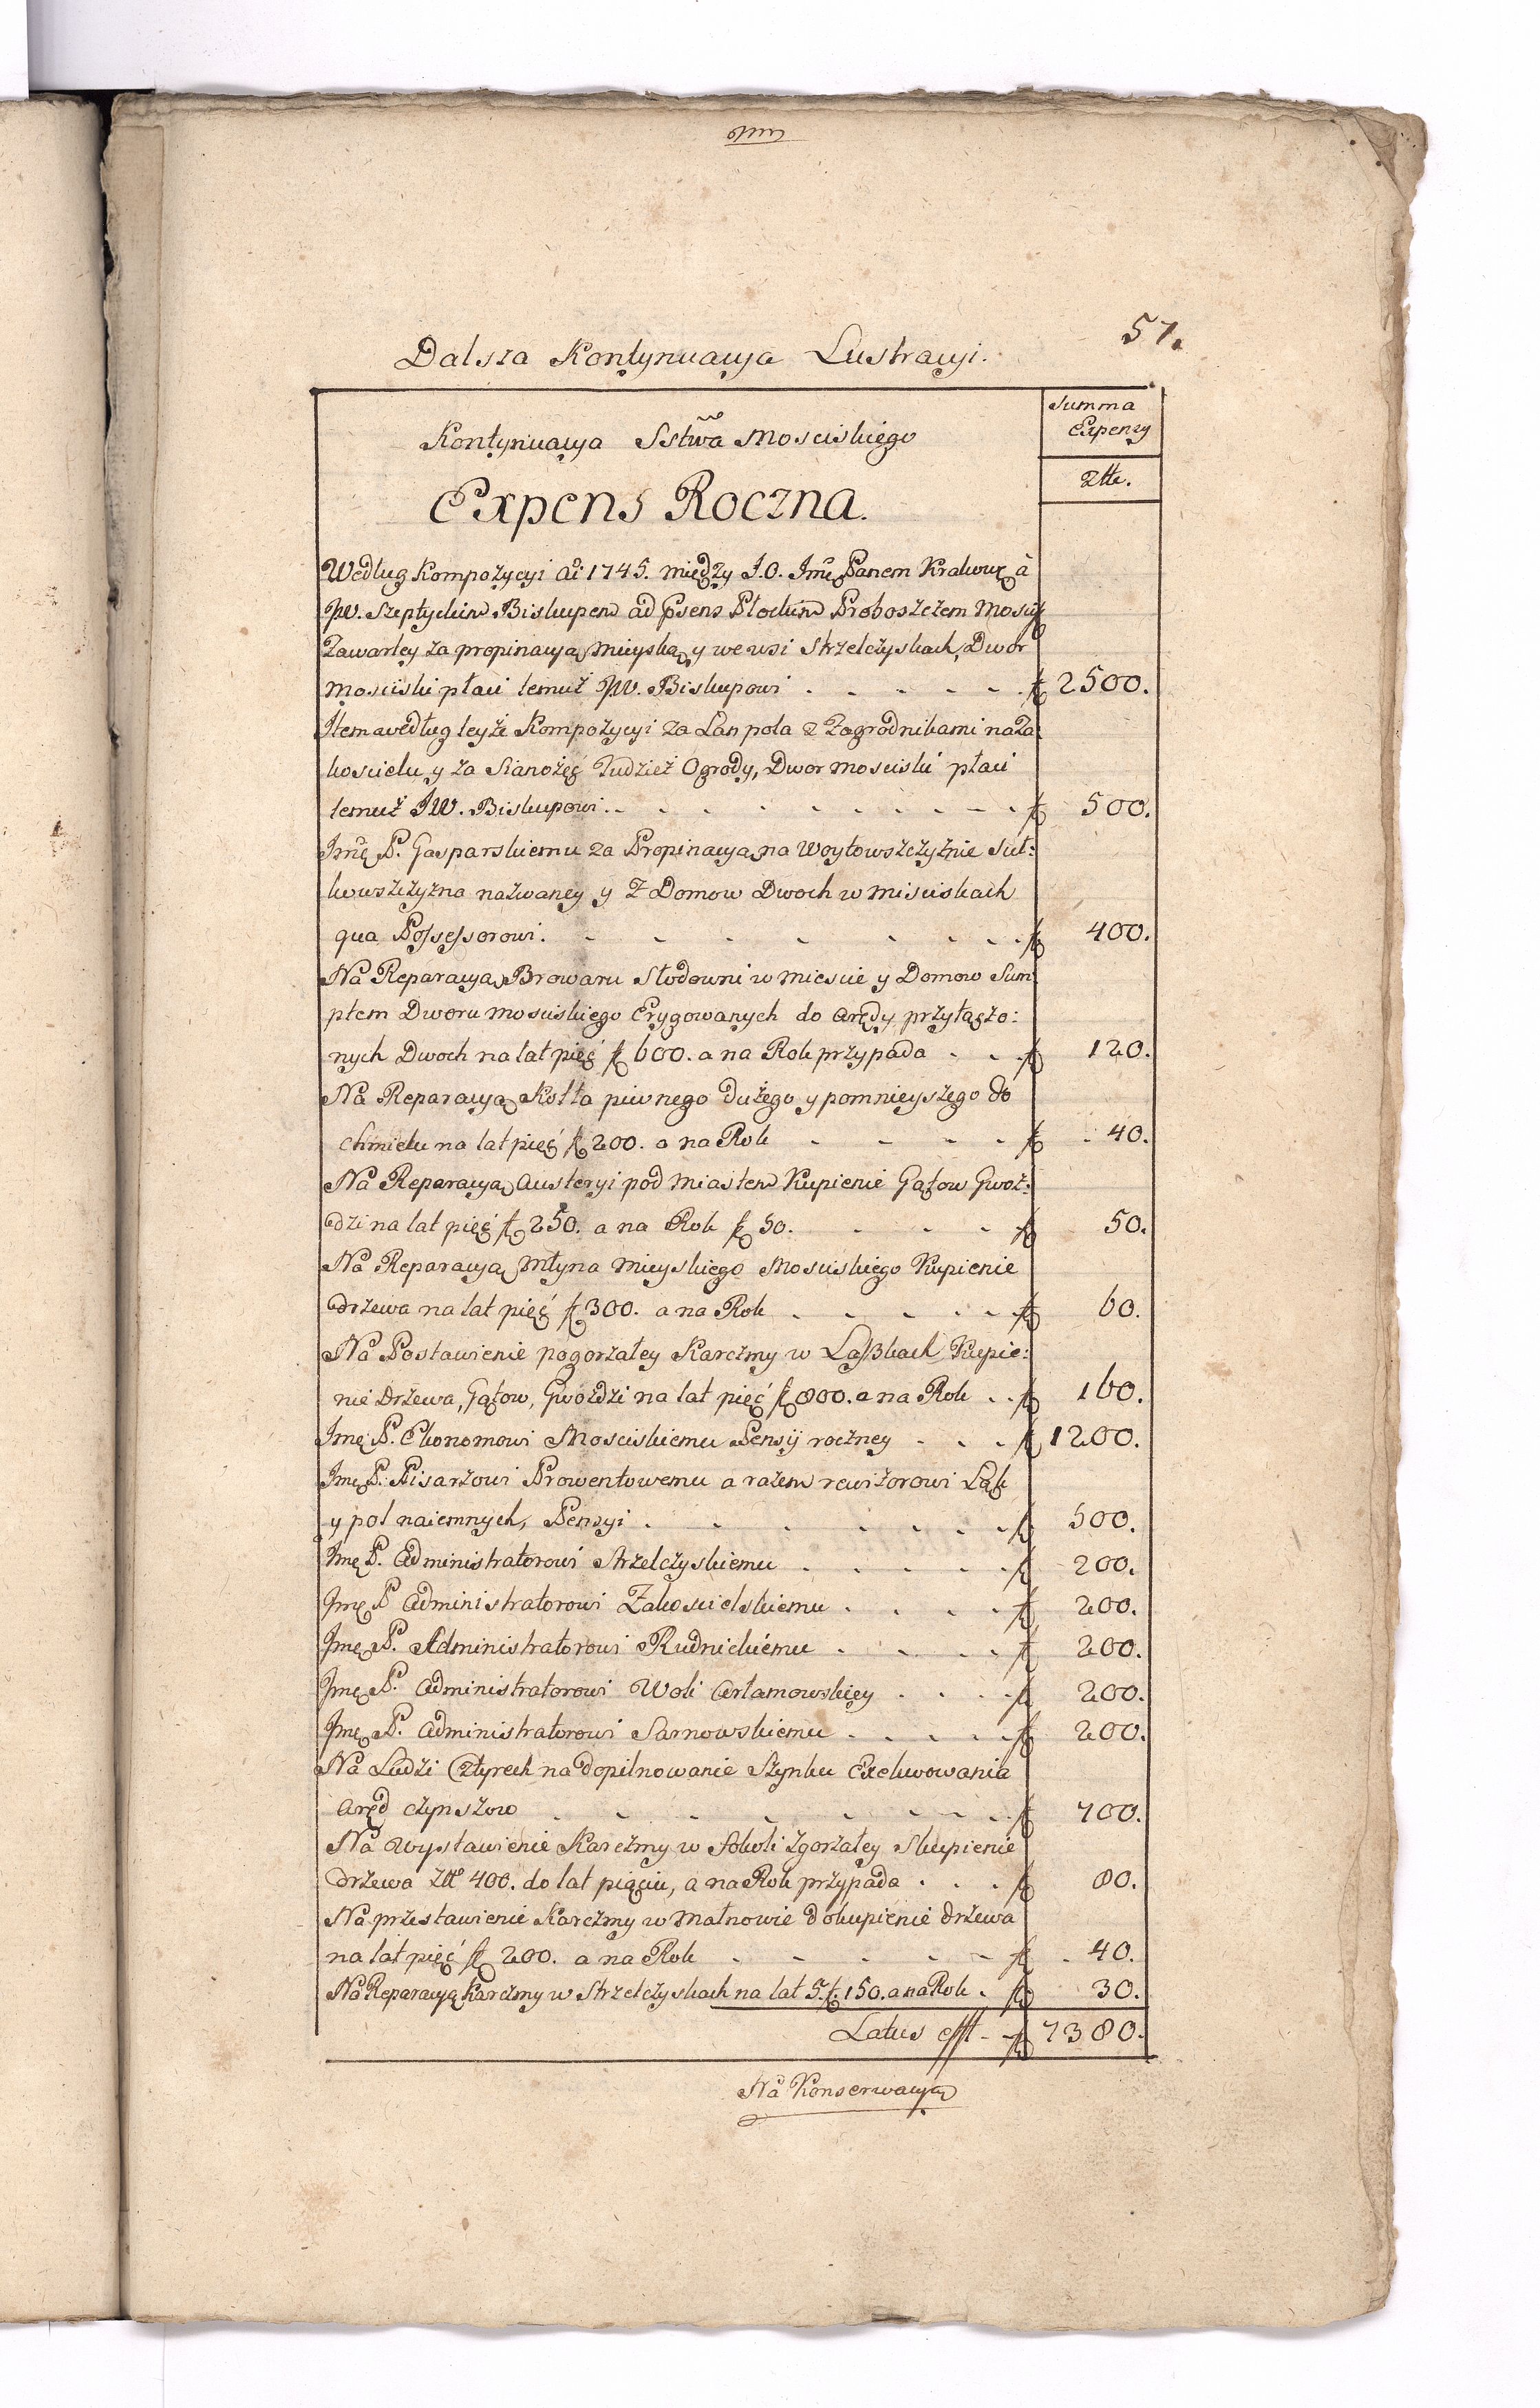 57.
Dalsza Kontynuacya Lustracyi.
Summa
Expensy
złł.
Kontynuacya Sstwa Mosciskiego
Expens Roczna.
Według Kompozycyi aõ: 1745. między J.O. Jmę Panem Krakows. à
JW. Szeptyckim Biskupem ad Psens Płockim Proboszczem Mosc:
Zawartey za propinacyą mieyską, y we wsi Strzelczyskach, Dwor
Mosciski płaci temuż JW. Biskupowi . - - - - - f 2500.
Item według teyże Kompozycyi za Łan pola z Zagrodnikami na Za
koscielu y za Sianożęć Tudzież Ogrody, Dwor Mosciski płaci
temuż JW. Biskupowi. - - - - - - - - f 500.
Jmę P. Gasparskiemu za Propinacyą na Woytowszczyznie Sut:
kowszczyzna nazwaney y Z Domow Dwoch w Mosciskach
qua Possessorowi. - - - - - - - f 400.
Na Reparacyą Browaru Słodowni w miescie y Domow Sum
ptem Dworu Mosciskiego Erygowanych do arędy przyłączo:
nych Dwoch na lat pięć f 600. a na Rok przypada . - . f 120.
Na Reparacyą Kotła piwnego dużego y pomnieyszego do
chmielu na lat pięć f 200. a na Rok - - - - f 40.
Na Reparacyą Austeryi pod Miastem Kupienie Gątow Gwoź:
dzi na lat pięć f 250. a na Rok f 50. - - - f 50.
Na Reparacyą Młyna Mieyskiego Mosciskiego Kupienie
drzewa na lat pięć f 300. a na Rok - - - - - f 60.
Na Postawienie pogorzałey Karczmy w Laszkach Kupie:
nie Drzewa, Gątow, Gwoździ na lat pięć f 800. a na Rok . . f 160.
Jmę P. Ekonomowi Mosciskiemu Pensij roczney - - . f 1200.
Jmę P. Pisarzowi Prowentowemu a razem rewizorowi Łąk
y pol naiemnych, Pensyi . - - - - - f 500.
Jmę P. Administratorowi Strzelczyskiemu . - - - - f 200.
Jmę P Administratorowi Zakoscielskiemu . . . - f 200.
Jmę P. Administratorowi Rudnickiemu . - - - f 200.
Jmę P. Administratorowi Woli Arłamowskiey . . . - f 200.
Jmę P. Administratorowi Sarnowskiemu . - - - - f 200.
Na Ludzi Cztyrech na dopilnowanie Szynku Exekwowania
Aręd czynszow - - - - - - - f 700.
Na wystawienie Karczmy w Sokoli zgorzałey Skupienie
drzewa złł 400. do lat pięciu, a na Rok przypada . . . f 80.
Na przestawienie Karczmy w Małnowie dokupienie drzewa
na lat pięć f 200. a na Rok - - - - - f 40.
Na Reparacyą Karczmy w Strzelczyskach na lat 5. f. 150. a na Rok . f 30.
Latus efft - f 7380.
Na Konserwacyą